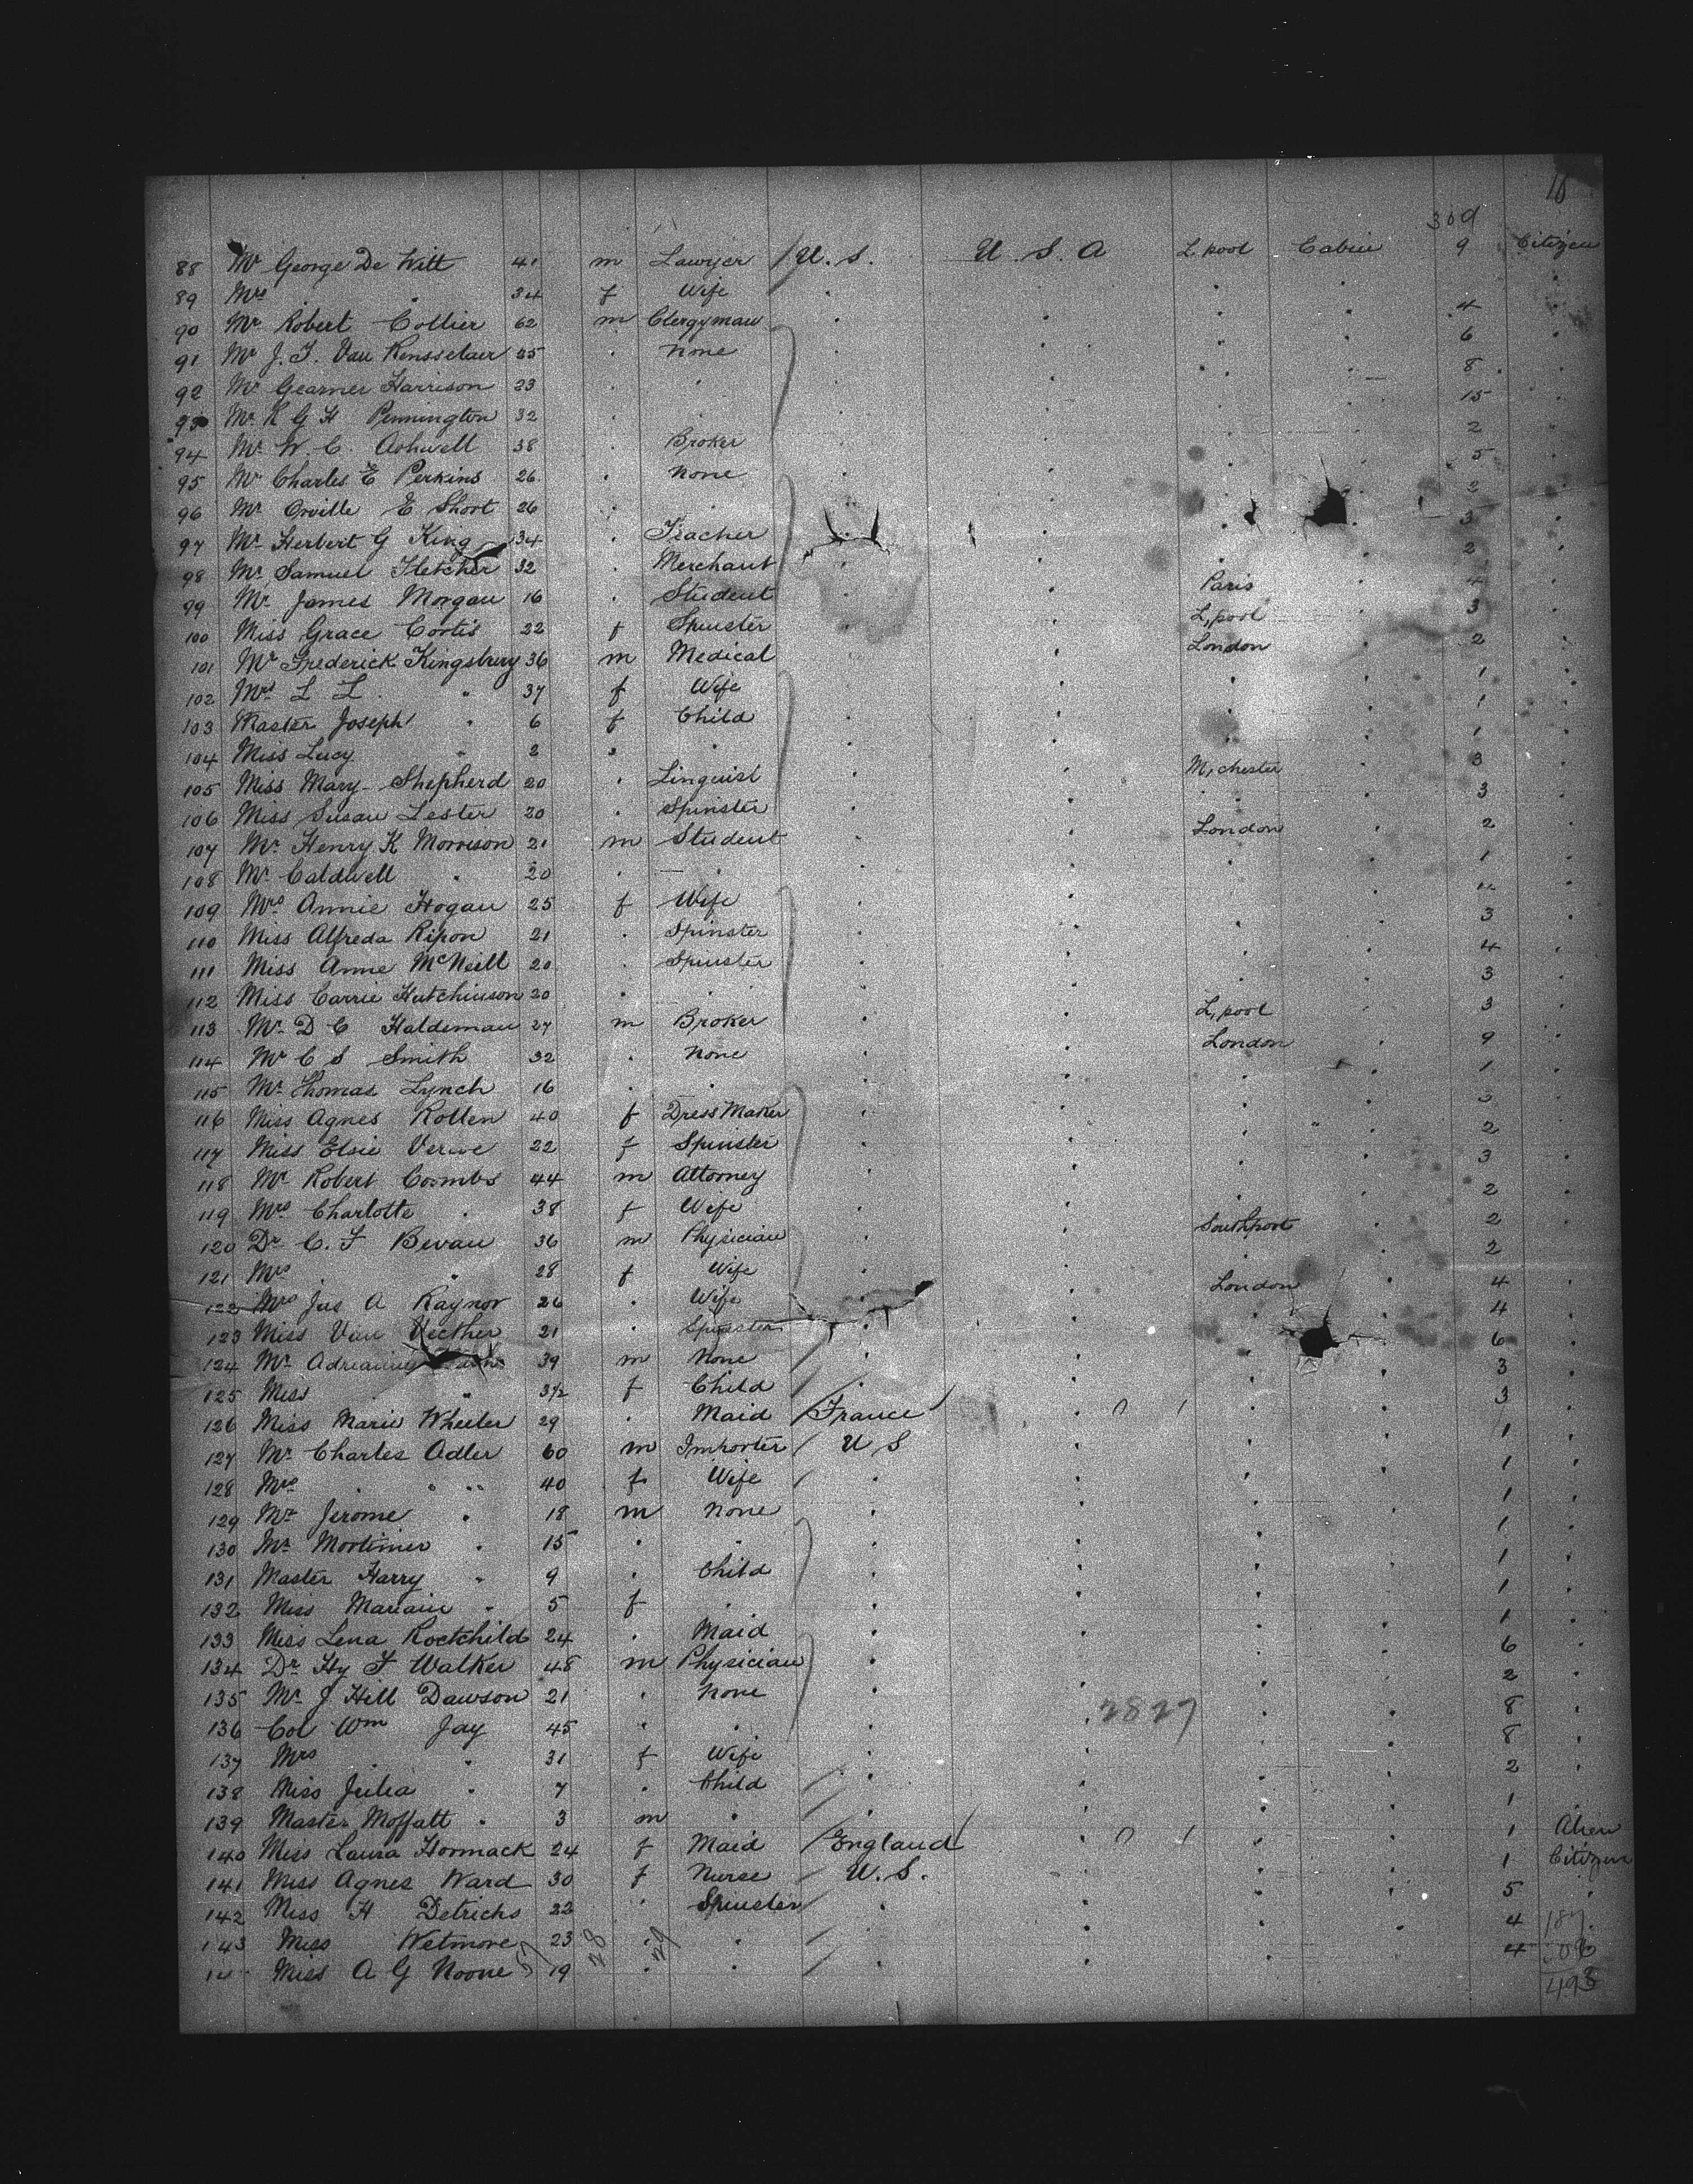 16
309
88 Mr George De Witt 41 m Lawyer U. S. U. S. A L pool Cabin 9 Citizen
89 Mrs " 34 f Wife
90 Mr Robert Collier 62 m Clergyman 4
91 Mr J. T. Van Rensselaer 35 " None 6
92 Mr Gearner Harrison 23 " " 8
93 Mr R G H Pennington 32 15
94 Mr W. C. Ashwell 38 " Broker 2
95 Mr Charles E Perkins 26 " None 5
96 Mr Orville E Short 26 " 2
97 Mr Herbert G King 34 " Teacher 3
98 Mr Samuel Fletcher 32 " Merchant 2
99 Mr James Morgan 16 " Student Paris 4
100 Miss Grace Cortis 22 f Spinster L,pool 3
101 Mr Frederick Kingsbury 36 m Medical London 2
102 Mrs L L " 37 f Wife 1
103 Master Joseph " 6 f Child 1
104 Miss Lucy " 2 " " 1
105 Miss Mary Shepherd 20 " Linguist M,chester 3
106 Miss Susan Lester 20 " Spinster 3
107 Mr Henry K Morrison 21 m Student London 2
108 Mr Caldwell " 20 " " 1
109 Mrs Annie Hogan 25 f Wife
110 Miss Alfreda Ripon 21 " Spinster 3
111 Miss Anne McNeill 20 " Spinster 4
112 Miss Carrie Hutchinson 20 " " 3
113 Mr D C Haldeman 27 m Broker L,pool 3
114 Mr C S Smith 32 " None London 9
115 Mr Thomas Lynch 16 " " 1
116 Miss Agnes Rollen 40 f Dress Maker 3
117 Miss Elsie Verwe 22 f Spinster 2
118 Mr Robert Coombs 44 m Attorney 3
119 Mrs Charlotte " 38 f Wife 2
120 Dr C. F Bevan 36 m Physician Southport 2
121 Mrs " 28 f Wife 2
122 Mrs Jas A Raynor 26 " Wife London 4
123 Miss Van Vecther 21 " Spinster 4
124 Mr 39 m None 6
125 Miss " 3½ f Child 3
126 Miss Marie Wheeler 29 " Maid France 3
127 Mr Charles Adler 60 m Importer U S 1
128 Mrs " " 40 f Wife 1
129 Mr Jerome " 18 m None 1
130 Mr Mortimer " 15 " " 1
131 Master Harry " 9 " Child 1
132 Miss Mariam " 5 f " 1
133 Miss Lena Roctchild 24 " Maid 1
134 Dr Hy F Walker 48 m Physician 6
135 Mr J Hill Dawson 21 " None 2
136 Col Wm Jay 45 " " 2827 8
137 Mrs " 31 f Wife 8
138 Miss Julia " 7 " Child 2
139 Master Moffatt " 3 m " 1
140 Miss Laura Hormack 24 f Maid England 1 Alien
141 Miss Agnes Ward 30 f Nurse U. S. 1 Citizen
142 Miss H Detrichs 22 " Spinster 5
143 Miss Wetmore 23 " " 4
Miss A G Noone 19 " " 4
57 28 29
498